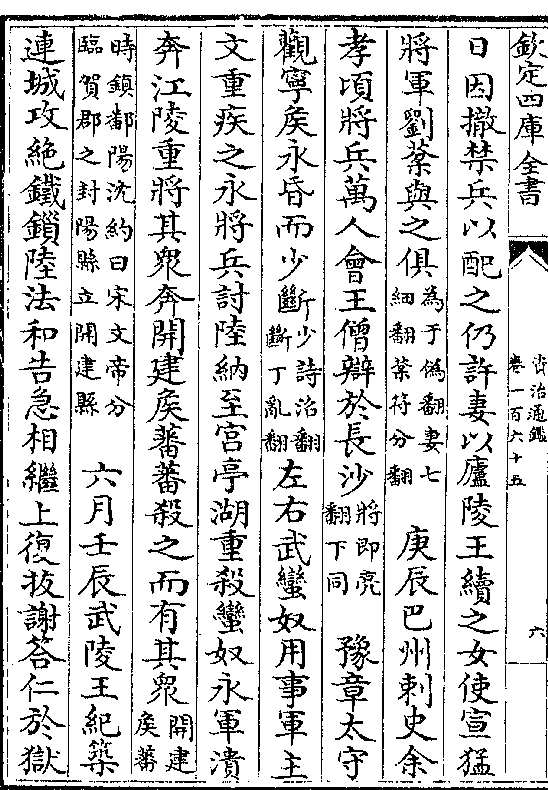 欽定四庫全書
資治通鑑
卷一百六十五
六
日因撤禁兵以配之仍許妻以廬陵王續之女使宣猛
將軍劉棻與之俱為于偽翻妻七細翻棻符分翻 庚辰巴州刺史余
孝頃將兵萬人會王僧辯於長沙將即亮翻下同 豫章太守
觀寧侯永昏而少斷少詩沼翻斷丁亂翻左右武蠻奴用事軍主
文重疾之永將兵討陸納至宮亭湖重殺蠻奴永軍潰
奔江陵重將其衆奔開建侯蕃蕃殺之而有其衆開建侯蕃
時鎮鄱陽沈約曰宋文帝分臨賀郡之封陽縣立開建縣 六月壬辰武陵王紀築
連城攻絶鐵鎖陸法和告急相繼上復拔謝答仁於獄